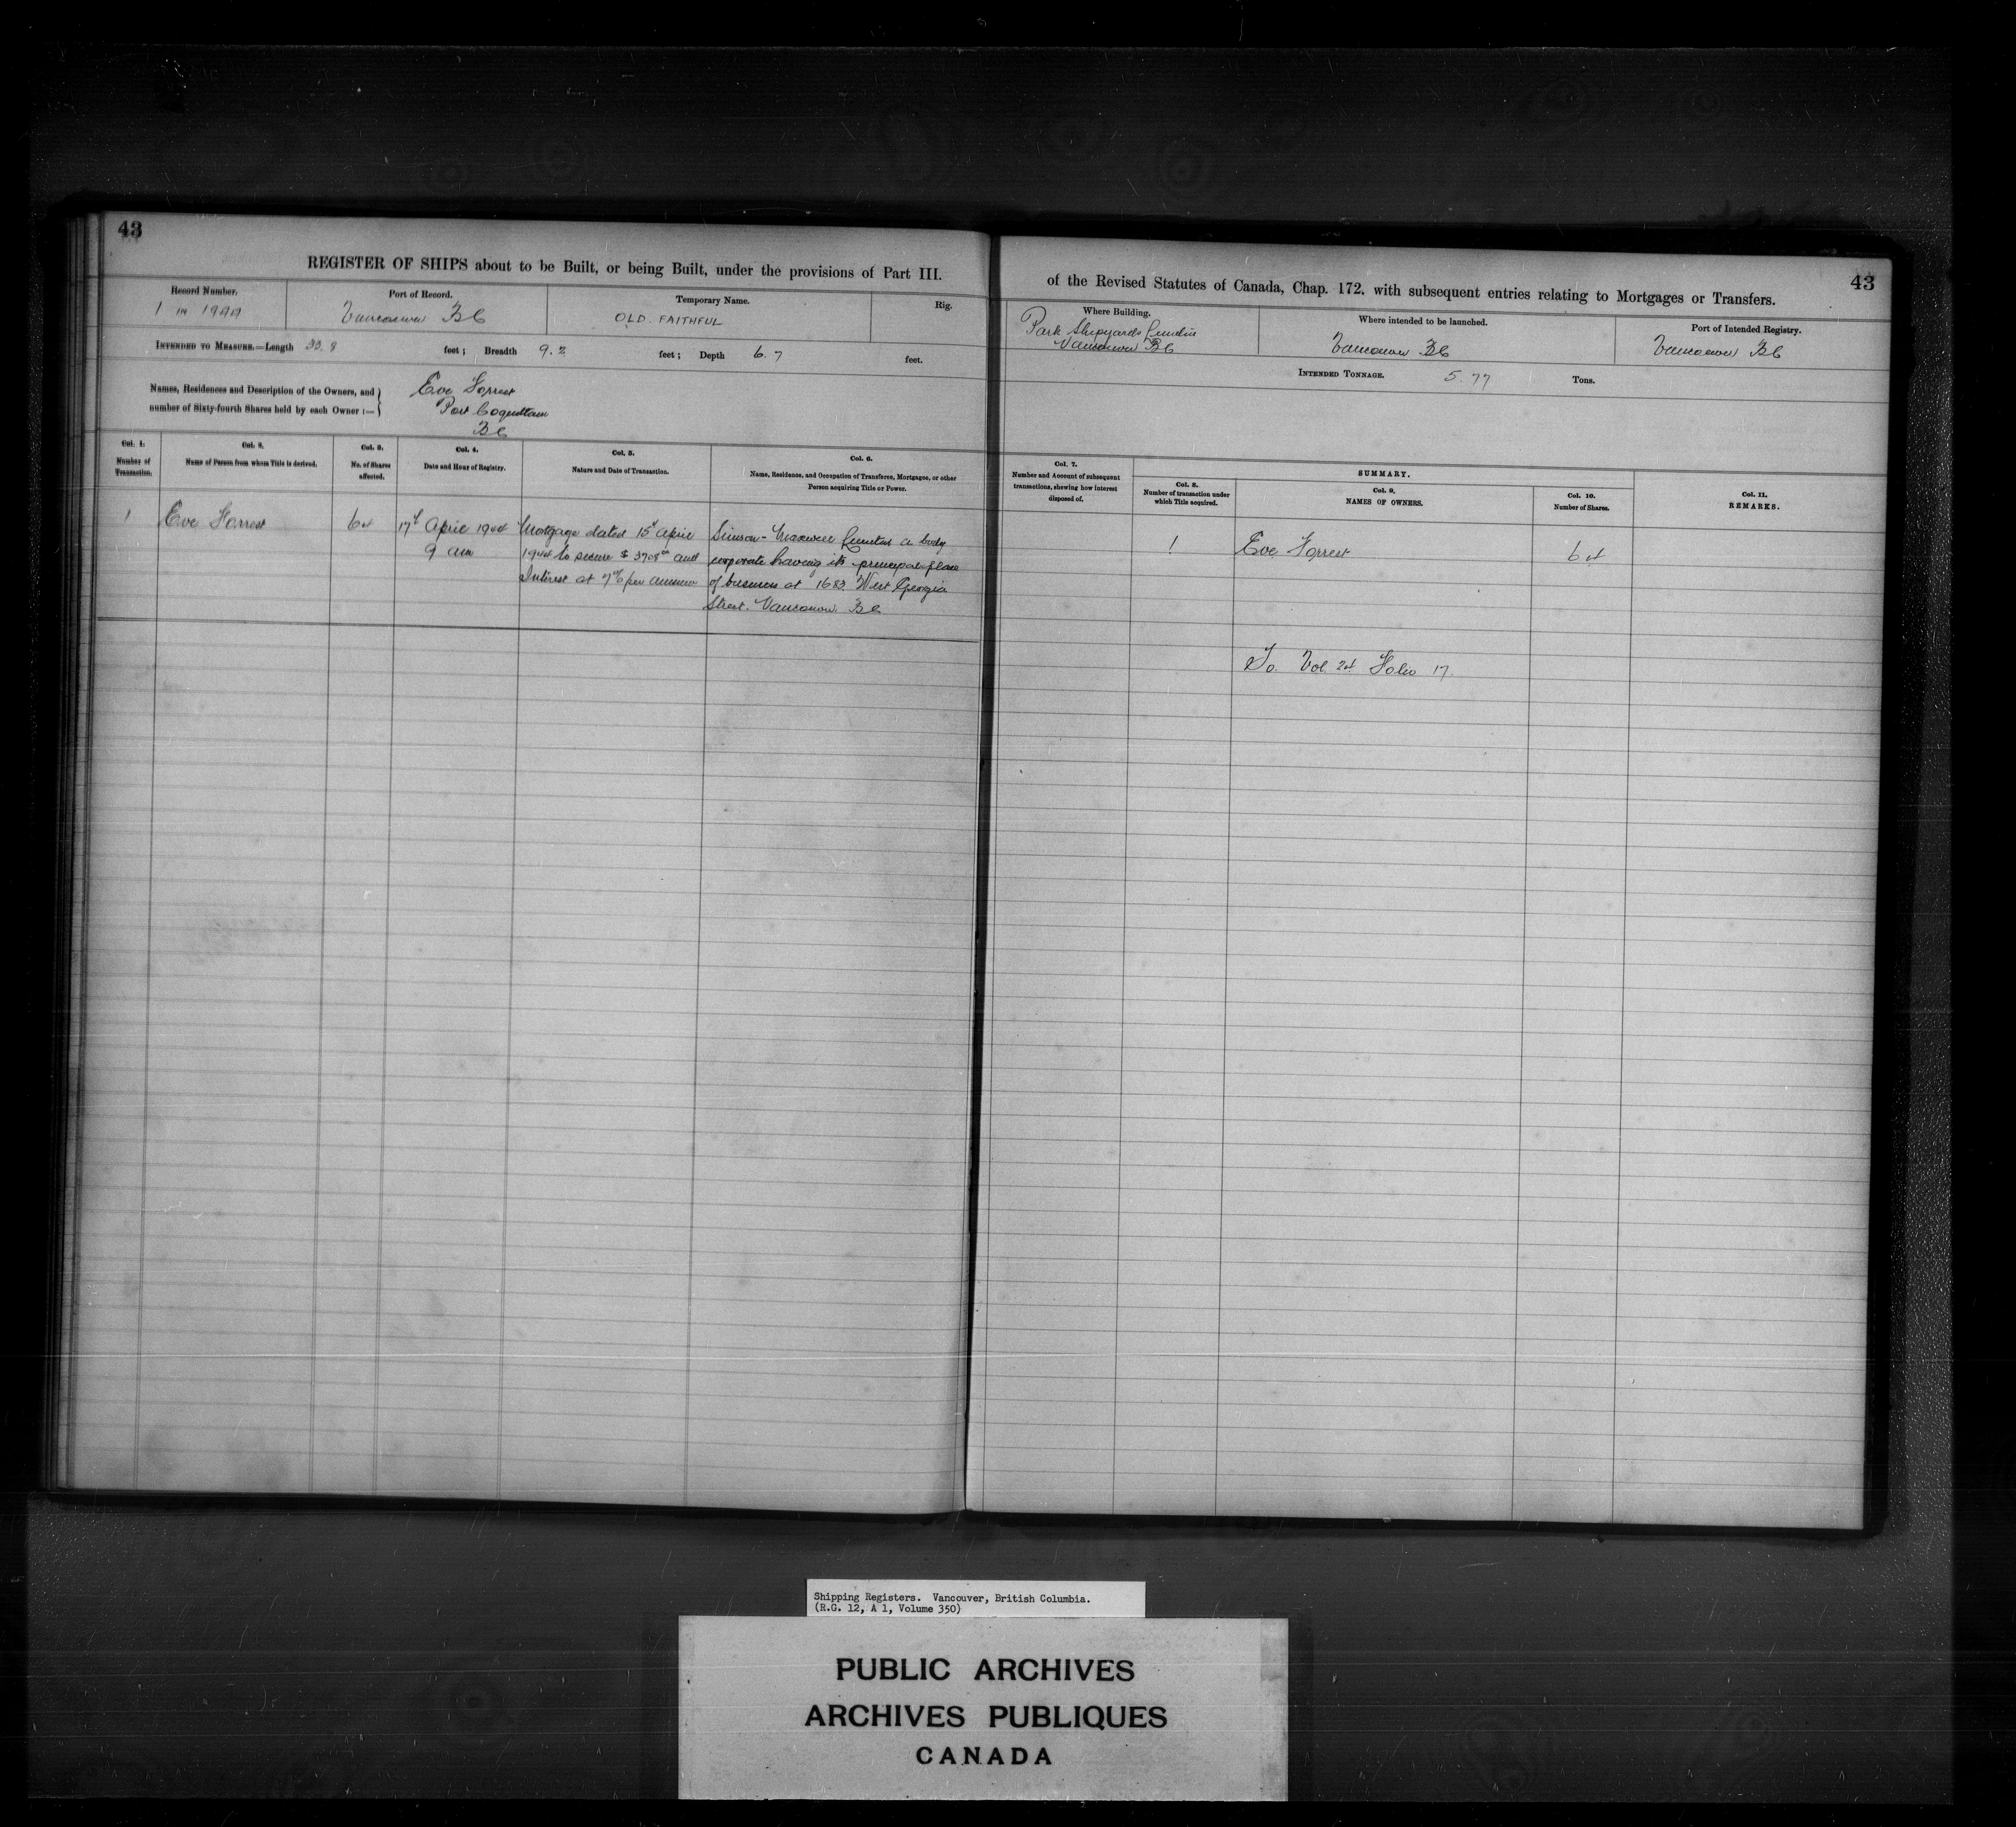 43
REGISTER OF SHIPS about to be Built, or being Built, under the provisions of Part III.
Record Number.
1 in 1944
Port of Record.
Vancouver BC
Temporary Name.
OLD FAITHFUL
Rig.
INTENDED TO MEASURE.—Length 33.8 feet; Breadth 9.2 feet; Depth 6.7 feet.
Names, Residences and Description of the Owners, and
number of Sixty-fourth Shares held by each Owner :—
Eve Forrest
Port Coquitlam
BC
Col. 1.
Number of
Transaction.
Col. 2.
Name of Person from whom Title is derived.
Col. 3.
No. of Shares
affected.
Col. 4.
Date and Hour of Registry.
Col. 5.
Nature and Date of Transaction.
Col. 6.
Name, Residence, and Occupation of Transferee, Mortgagee, or other
Person acquiring Title or Power.
1
Eve Forrest
64
17th April 1944
9 am
Mortgage dated 15th April
1944 to secure $ 3708 00 and
Interest at 7% per annum
Simson-Maxwell Limited a body
corporate having its principal place
of business at 1683 West Georgia
Street. Vancouver. BC
43
of the Revised Statutes of Canada, Chap. 172. with subsequent entries relating to Mortgages or Transfers.
Where Building.
Park Shipyards Limited
Vancouver BC
Where intended to be launched.
Vancouver BC
Port of Intended Registry.
Vancouver BC
INTENDED TONNAGE. 5.77 Tons.
Col. 7.
Number and Account of subsequent
transactions, shewing how interest
disposed of.
SUMMARY.
Col. 8.
Number of transaction under
which Title acquired.
Col. 9.
NAMES OF OWNERS.
Col. 10.
Number of Shares.
Col. 11.
REMARKS.
1
Eve Forrest
64
To. Vol. 24 Folio 17.
Shipping Registers. Vancouver, British Columbia.
(R.G. 12, A 1, Volume 350)
PUBLIC ARCHIVES
ARCHIVES PUBLIQUES
CANADA